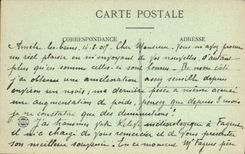 CARTE POSTALE
CORRESPONDANCE ADRESSE
Amélie-les-bains, 11-8-09. Cher Monsieur, Vous m'avez procuré
un réel plaisir en m'envoyant de vos nouvelles, d'autant
plus qu'en somme elles sont bonnes. De mon côté
j'ai obtenu une amélioration assez sensible depuis
environ un mois; ma dernière pesée a même accusé
une augmentation de poids, pensez que depuis 3 mois
je ne constatais que des diminutions.
J'ai
et m'a chargé de vous remercier et de vous présenter
son meilleur souvenir. En ce moment M. Faguer